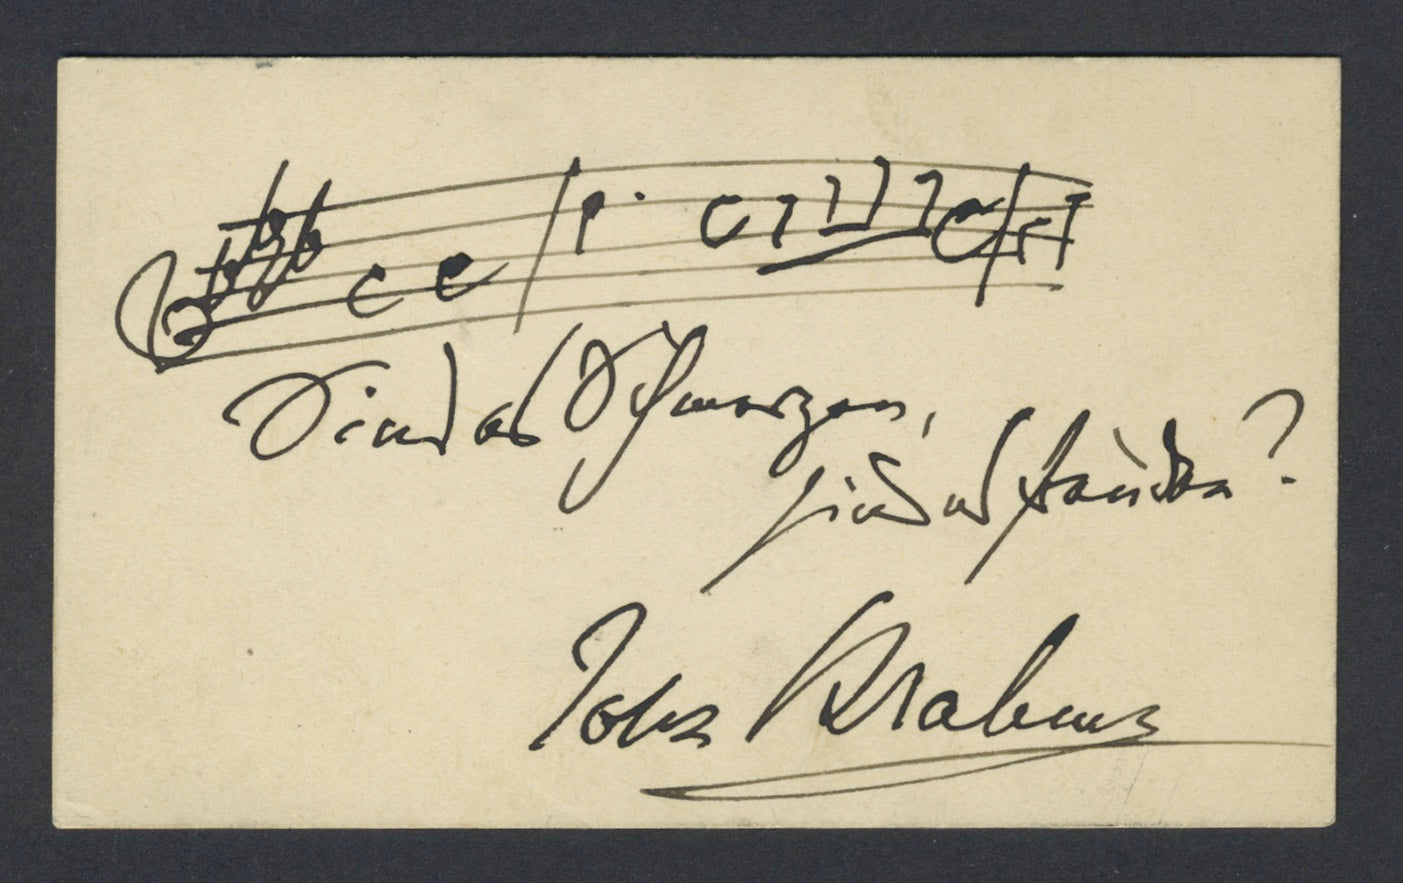 Sind es Schmerzen,
sind es Freuden?
Johs Brahms